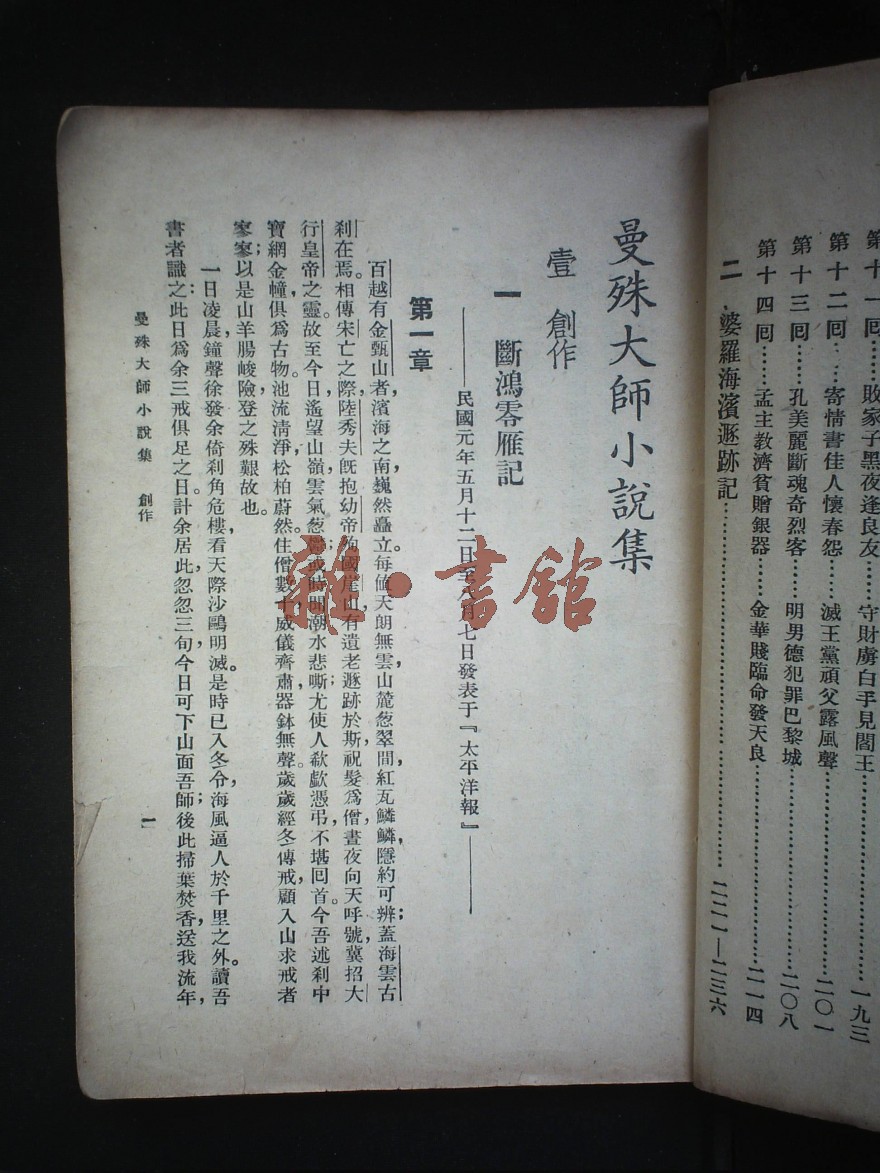 第十一回……敗家子黑夜逢良友……守財虜白手見閻王……一九三
第十二回……寄情書佳人懷春怨……滅王黨頑父露風聲……二〇一
第十三回……孔美麗斷魂奇烈客……明男德犯罪巴黎城……二〇八
第十四回……孟主教濟貧贈銀器……金華賤臨命發天良……二一四
二 婆羅海濱遯跡記……二二一—二三六
曼殊大師小說集
壹 創作
一 斷鴻零雁記
——民國元年五月十二日至八月七日發表于『太平洋報』——
第一章
百越有金甌山者，濱海之南，巍然矗立。每值天朗無雲，山麓葱翠間，紅瓦鱗鱗，隱約可辨；蓋海雲古
刹在焉。相傳宋亡之際，陸秀夫旣抱幼帝殉國崖山，有遺老遯跡於斯，祝髮爲僧，晝夜向天呼號，冀招大
行皇帝之靈。故至今日，遙望山嶺，雲氣葱鬱；或時聞潮水悲嘶，尤使人欷歔憑弔，不堪回首。今吾述刹中
寶網金幢，俱爲古物。池流清淨，松柏蔚然。住僧數十，威儀齊肅，器鉢無聲。歲歲經冬傳戒，顧入山求戒者
寥寥；以是山羊腸峻險，登之殊艱故也。
一日凌晨，鐘聲徐發，余倚刹角危樓，看天際沙鷗明滅。是時已入冬令，海風逼人於千里之外。讀吾
書者識之，此日爲余三戒俱足之日。計余居此忽忽三旬，今日可下山面吾師；後此掃葉焚香，送我流年，
曼殊大師小說集 創作
一
雜·書館